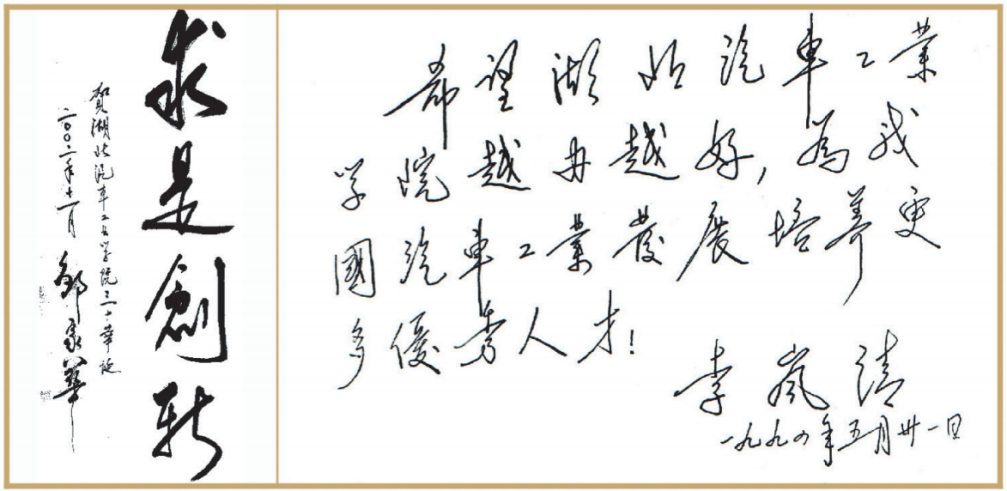 求是創新
賀湖北汽车工业学院三十華诞
二〇〇二年十一月 邹家華
希望湖北汽車工業
学院越办越好，為我
國汽車工業發展培养更
多優秀人才！
李岚清
一九九四年五月卅一日